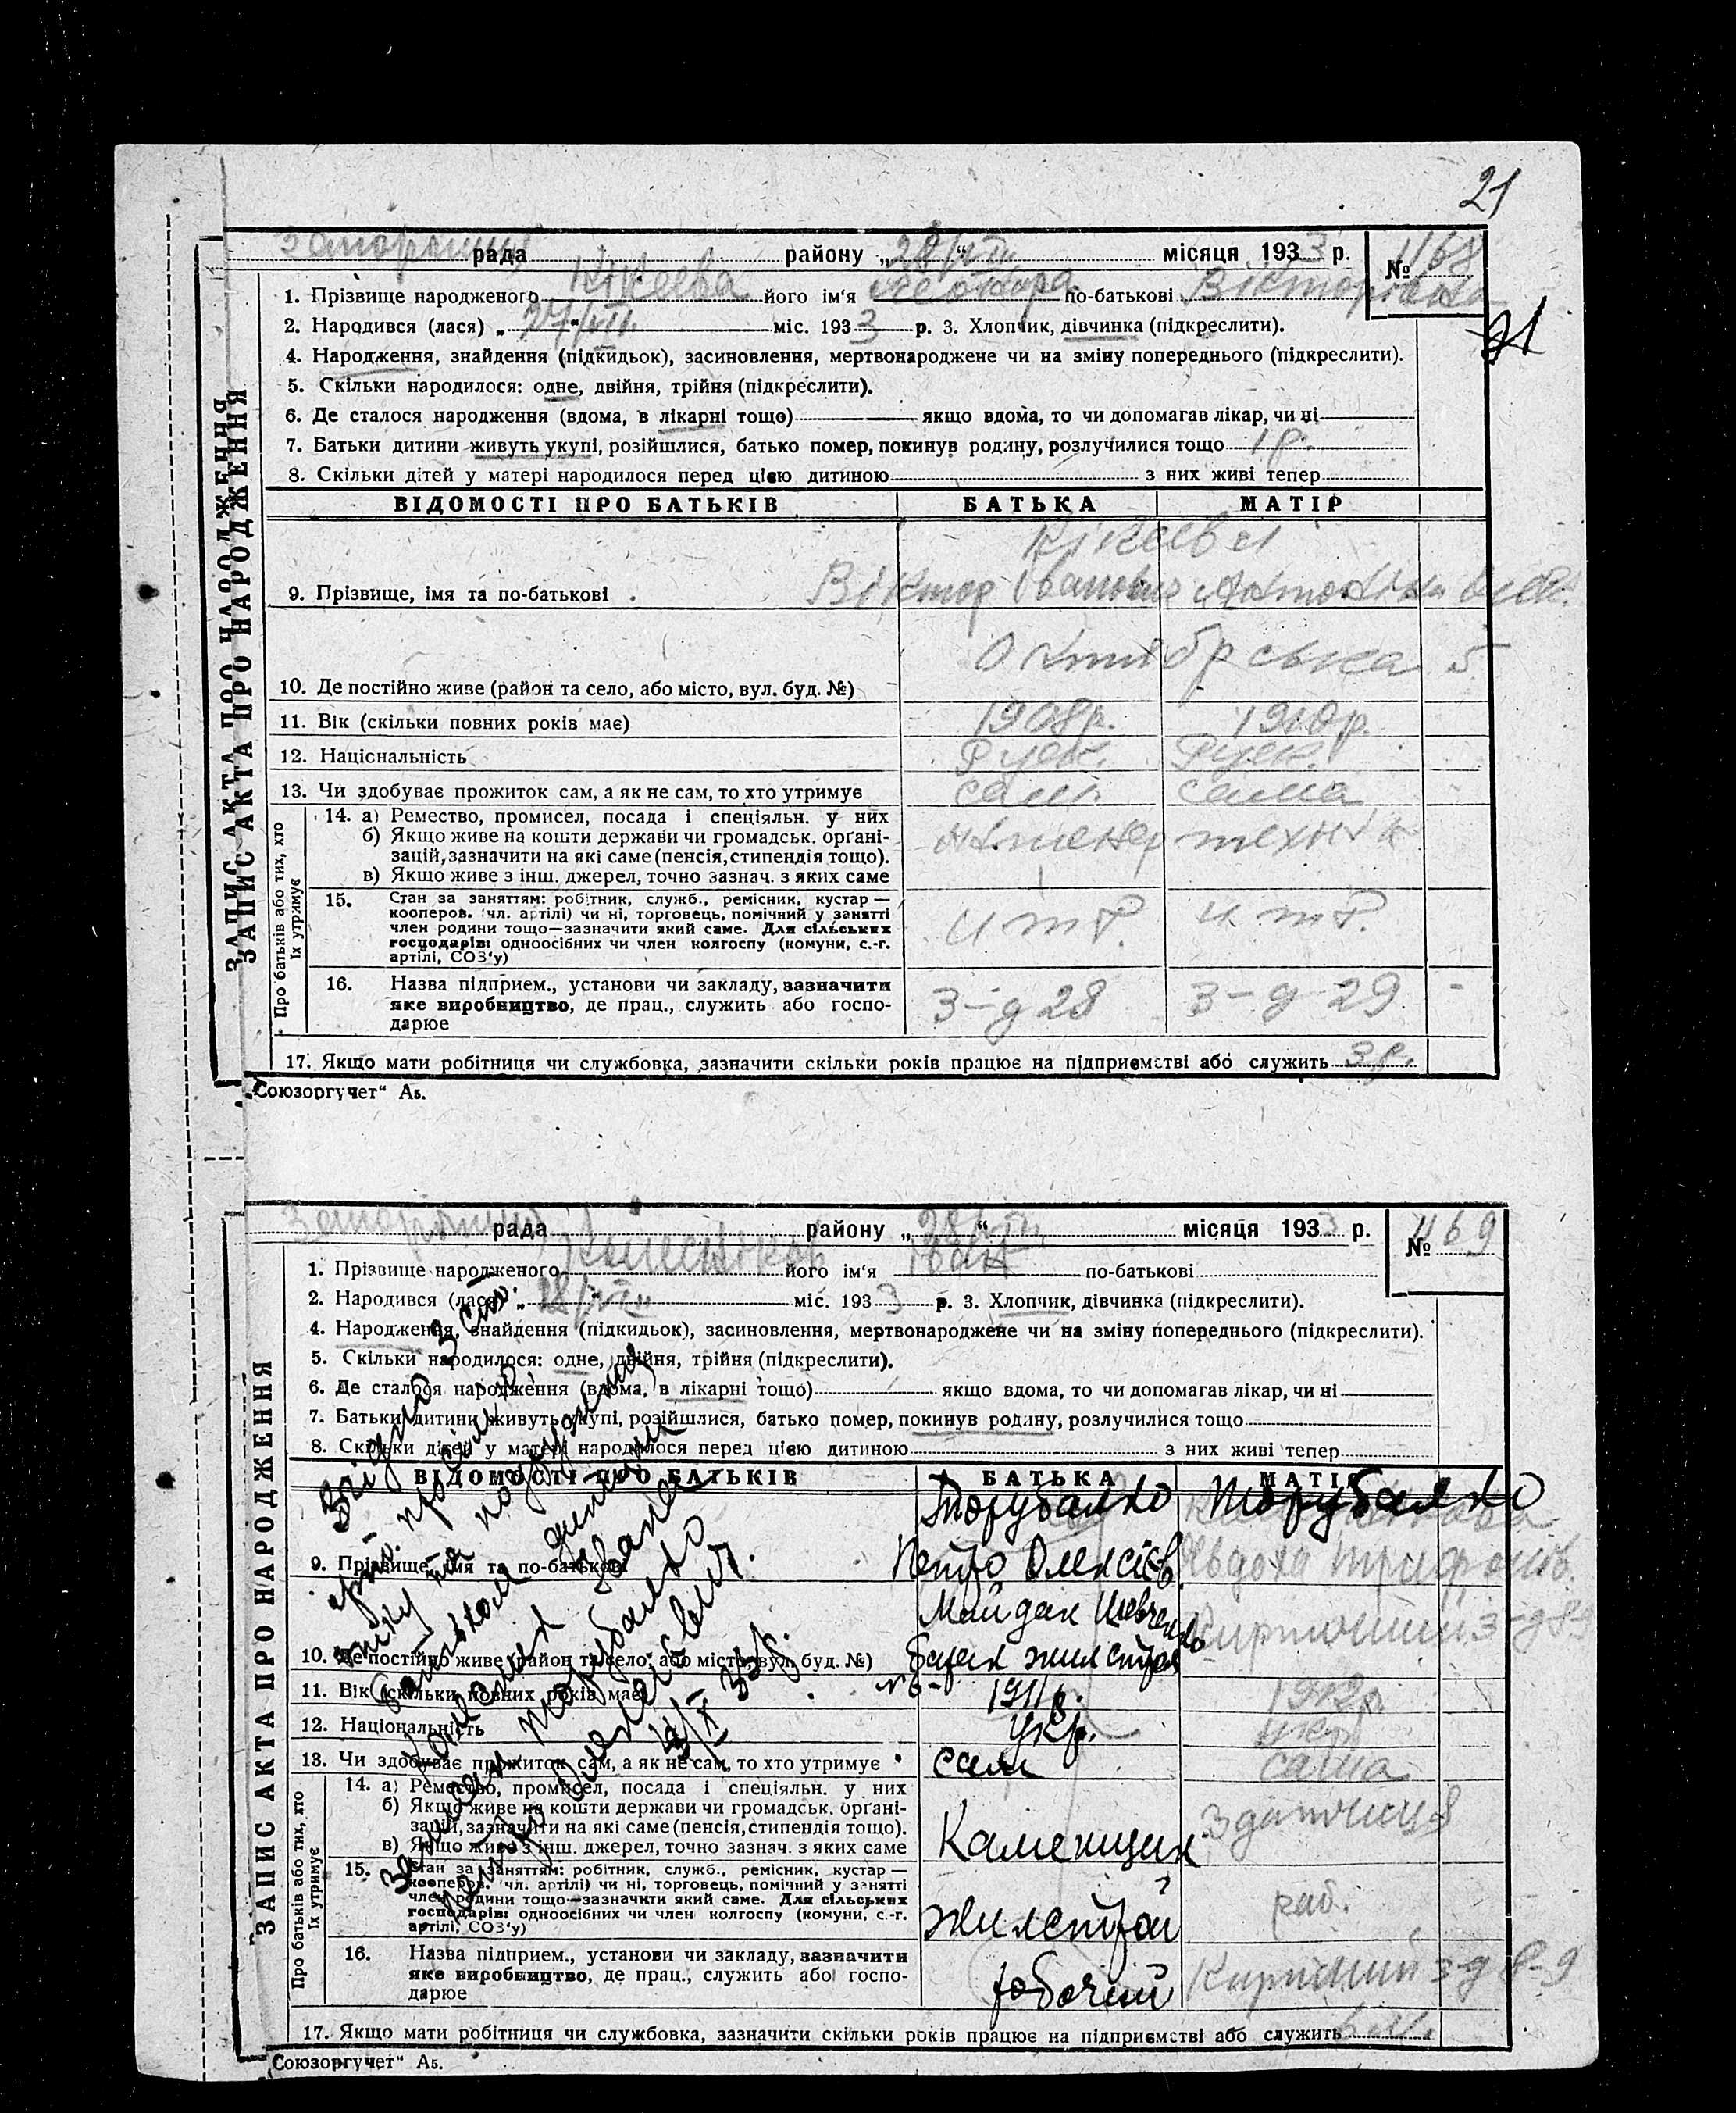 21
Запорізький рада району „28/VII“ місяця 1933 р. № 1168
1. Прізвище народженого Кікеєва його ім'я по-батькові Вікторівна
2. Народився (лася) „27/VII“ міс. 1933 р. 3. Хлопчик, дівчинка (підкреслити).
21
4. Народження, знайдення (підкидьок), засиновлення, мертвонароджене чи на зміну попереднього (підкреслити).
5. Скільки народилося: одне, двійня, трійня (підкреслити).
6. Де сталося народження (вдома, в лікарні тощо) — якщо вдома, то чи допомагав лікар, чи ні
7. Батьки дитини живуть укупі, розійшлися, батько помер, покинув родину, розлучилися тощо 1 р.
8. Скільки дітей у матері народилося перед цією дитиною з них живі тепер
ЗАПИС АКТА ПРО НАРОДЖЕННЯ
ЗАПИС АКТА ПРО НАРОДЖЕННЯ
ВІДОМОСТІ ПРО БАТЬКІВ БАТЬКА МАТІР
Кікеєви
9. Прізвище, імя та по-батькові Віктор Іванович Антоніна
10. Де постійно живе (район та село, або місто, вул. буд. №) Октябрська 5
11. Вік (скільки повних років має) 1908р. 1910р.
12. Національність Руск. Руск.
13. Чи здобуває прожиток сам, а як не сам, то хто утримує сам. сама
Про батьків або тих, хто їх утримує
14. а) Ремество, промисел, посада і спеціяльн. у них
б) Якщо живе на кошти держави чи громадськ. орґані-
зацій, зазначити на які саме (пенсія, стипендія тощо). інженер технік
в) Якщо живе з інш. джерел, точно зазнач. з яких саме
15. Стан за заняттям: робітник, служб., ремісник, кустар —
кооперов. (чл. артілі) чи ні, торговець, помічний у занятті
член родини тощо—зазначити який саме. Для сільських
господарів: одноосібних чи член колгоспу (комуни, с.-г.
артілі, СОЗ'у) ИТР. ИТР.
16. Назва підприєм., установи чи закладу, зазначити
яке виробництво, де прац., служить або госпо-
дарює З-д 28 З-д 29
17. Якщо мати робітниця чи службовка, зазначити скільки років працює на підприємстві або служить 3 р.
„Союзоргучет“ Аб.
Запорізький рада району „28/VII“ місяця 1933 р. № 1169
1. Прізвище народженого Колесніков його ім'я Іван по-батькові
2. Народився (лася) „28/VII“ міс. 1933 р. 3. Хлопчик, дівчинка (підкреслити).
4. Народження, знайдення (підкидьок), засиновлення, мертвонароджене чи на зміну попереднього (підкреслити).
5. Скільки народилося: одне, двійня, трійня (підкреслити).
6. Де сталося народження (вдома, в лікарні тощо) якщо вдома, то чи допомагав лікар, чи ні
7. Батьки дитини живуть укупі, розійшлися, батько помер, покинув родину, розлучилися тощо
8. Скільки дітей у матері народилося перед цією дитиною з них живі тепер
ЗАПИС АКТА ПРО НАРОДЖЕННЯ
ВІДОМОСТІ ПРО БАТЬКІВ БАТЬКА МАТІР
Торубалко Торубалко
9. Прізвище, імя та по-батькові Петро Олексієв. Явдоха Трифонів.
Майдан Шевченко
10. Де постійно живе (район та село, або місто, вул. буд. №) барак жилстрой Кирпичний з-д 8-9
№ 6
11. Вік (скільки повних років має) 1911 р. 1912р.
12. Національність Укр. укр.
13. Чи здобуває прожиток сам, а як не сам, то хто утримує сам сама
Про батьків або тих, хто їх утримує
14. а) Ремество, промисел, посада і спеціяльн. у них
б) Якщо живе на кошти держави чи громадськ. орґані-
зацій, зазначити на які саме (пенсія, стипендія тощо).
в) Якщо живе з інш. джерел, точно зазнач. з яких саме Каменщик здатчиця
15. Стан за заняттям: робітник, служб., ремісник, кустар —
кооперов. (чл. артілі) чи ні, торговець, помічний у занятті
член родини тощо—зазначити який саме. Для сільських
господарів: одноосібних чи член колгоспу (комуни, с.-г.
артілі, СОЗ'у) Жилстрой раб.
16. Назва підприєм., установи чи закладу, зазначити
яке виробництво, де прац., служить або госпо-
дарює робочий Кирпичний з-д 8-9
17. Якщо мати робітниця чи службовка, зазначити скільки років працює на підприємстві або служить
„Союзоргучет“ Аб.
Згідно з ст.
арт. про сімю,
опіку та подружжя
батьком дитини
Колесник Івана
записан Торубалко
Петро Олексієвич.
33р.